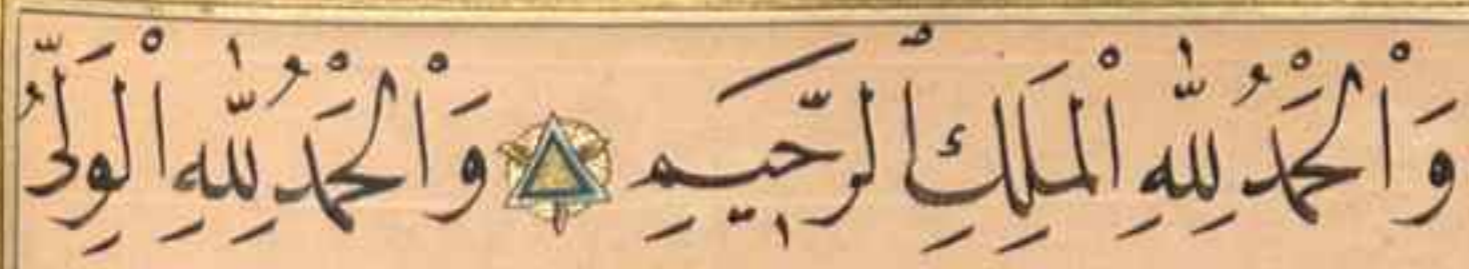 وَاْلحَمْدُ لِلّٰهِ اْلمَلِكِ الرَّحِيمِ وَاْلحَمْدُ لِلّٰهِ اْلوَلِىُّ